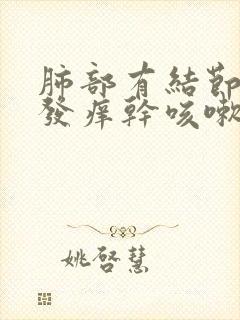 肺部有結節
發癢幹咳嗽
姚啓慧